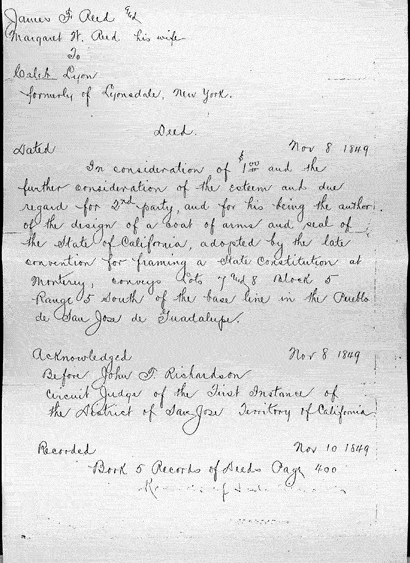 James F Reed and
Margaret W. Reed his wife
To
Caleb Lyon
formerly of Lyonsdale, New York.
Deed.
Dated Nov 8 1849
In consideration of $1.00 and the
further consideration of the esteem and due
regard for 2nd party, and for his being the author
of the design of a coat of arms and seal of
the State of California, adopted by the late
convention for framing a State Constitution at
Monterey, conveys Lots 7 and 8 Block 5
Range 5 South of the base line in the Pueblo
de San Jose de Guadalupe.
Acknowledged Nov 8 1849
Before John T. Richardson
Circuit Judge of the First Instance of
the District of San Jose Territory of California
Recorded Nov 10 1849
Book 5 Records of Deeds Page 400